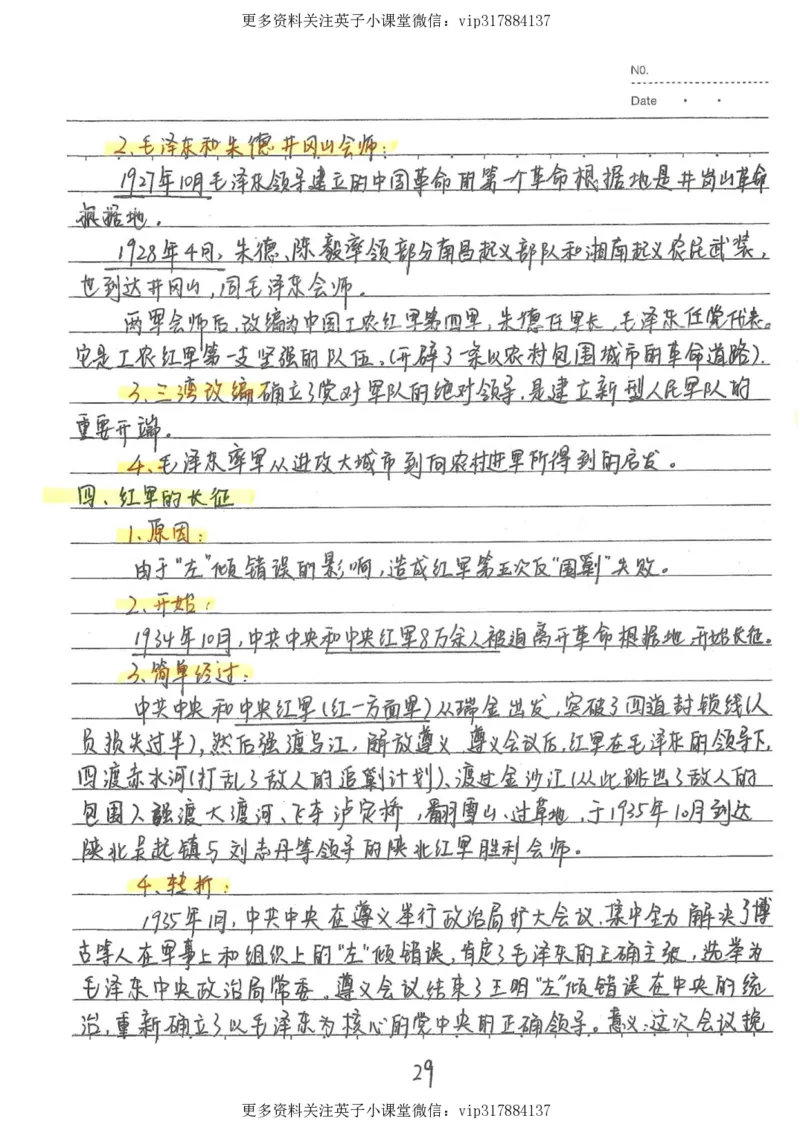 更多资料关注英子小课堂微信：vip317884137
NO.
Date
2、毛泽东和朱德井冈山会师：
1927年10月毛泽东领导建立的中国革命的第一个革命根据地是井岗山革命
根据地。
1928年4月，朱德、陈毅率领部分南昌起义部队和湘南起义农民武装，
也到达井冈山，同毛泽东会师。
两军会师后，改编为中国工农红军第四军，朱德任军长，毛泽东任党代表。
它是工农红军第一支坚强的队伍。（开辟了一条以农村包围城市的革命道路）.
3、三湾改编确立了党对军队的绝对领导，是建立新型人民军队的
重要开端。
4、毛泽东率军从进攻大城市到向农村进军所得到的启发。
四、红军的长征
1、原因：
由于“左”倾错误的影响，造成红军第五次反“围剿”失败。
2、开始：
1934年10月，中共中央和中央红军8万余人被迫离开革命根据地，开始长征。
3、简单经过：
中共中央和中央红军（红一方面军）从瑞金出发，突破了四道封锁线（人
员损失过半），然后强渡乌江，解放遵义，遵义会议后，红军在毛泽东的领导下，
四渡赤水河（打乱了敌人的追剿计划）、渡过金沙江（从此跳出了敌人的
包围）、强渡大渡河、飞夺泸定桥，翻雪山、过草地，于1935年10月到达
陕北吴起镇与刘志丹等领导的陕北红军胜利会师。
4、转折：
1935年1月，中共中央在遵义举行政治局扩大会议.集中全力解决了博
古等人在军事上和组织上的“左”倾错误，肯定了毛泽东的正确主张，选举为
毛泽东中央政治局常委。遵义会议结束了王明“左”倾错误在中央的统
治，重新确立了以毛泽东为核心的党中央的正确领导。意义：这次会议挽
29
更多资料关注英子小课堂微信：vip317884137